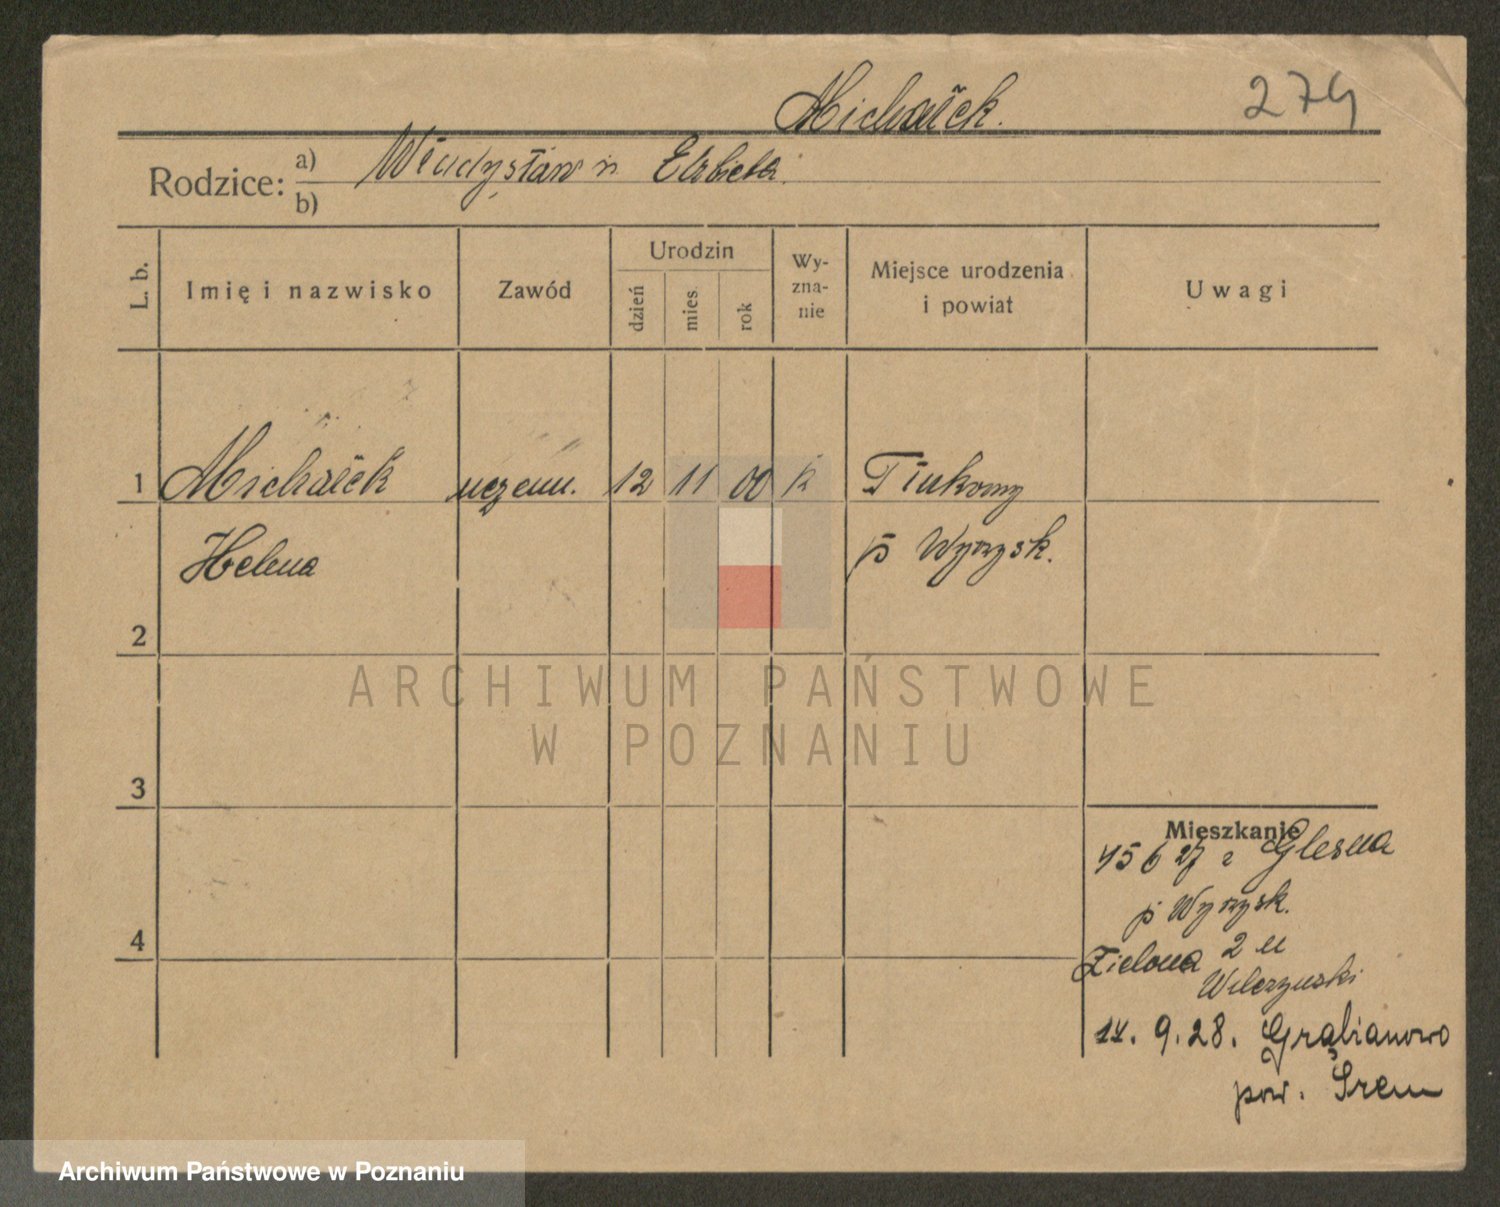 Michałek.
274
Rodzice: a) Władysław n Elżbieta.
b)
L. b.
Imię i nazwisko
Zawód
Urodzin
dzień
mies.
rok
Wy-
zna-
nie
Miejsce urodzenia
i powiat
Uwagi
1 Michałek uczenn. 12 11 00 k
Helena
p Wyrzysk.
2
3
4
Mieszkanie
15 6 27 z Glesna
p Wyrzysk.
Zielona 2 u
Wilczynski
14. 9. 28. Grąbianowo
pow. Śrem
ARCHIWUM PAŃSTWOWE
W POZNANIU
Archiwum Państwowe w Poznaniu